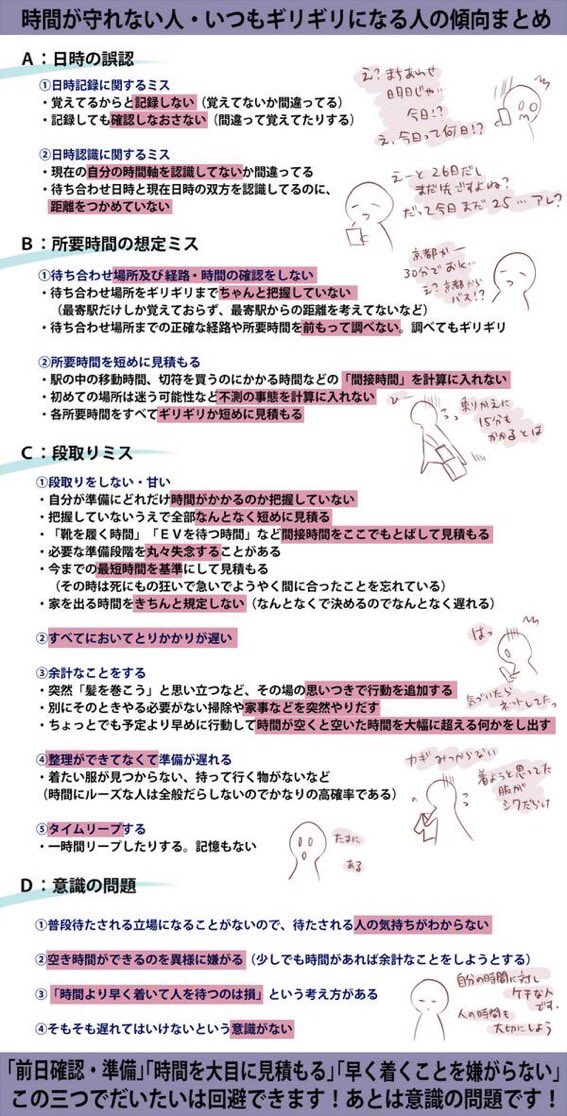 時間が守れない人・いつもギリギリになる人の傾向まとめ
A：日時の誤認
①日時記録に関するミス
・覚えてるからと記録しない（覚えてないか間違ってる）
・記録しても確認しなおさない（間違って覚えてたりする）
え？まちあわせ
明日じゃ…
今日!?
え、今日って何日!?
②日時認識に関するミス
・現在の自分の時間軸を認識してないか間違ってる
・待ち合わせ日時と現在日時の双方を認識してるのに、
距離をつかめていない
えーと26日だし
まだ先ですよね？
だって今日まだ25…アレ？
B：所要時間の想定ミス
①待ち合わせ場所及び経路・時間の確認をしない
・待ち合わせ場所をギリギリまでちゃんと把握していない
（最寄駅だけしか覚えておらず、最寄駅からの距離を考えてないなど）
・待ち合わせ場所までの正確な経路や所要時間を前もって調べない。調べてもギリギリ
京都か―
30分でお
え？京都から
バス!?
②所要時間を短めに見積もる
・駅の中の移動時間、切符を買うのにかかる時間などの「間接時間」を計算に入れない
・初めての場所は迷う可能性など不測の事態を計算に入れない
・各所要時間をすべてギリギリか短めに見積もる
乗りかえに
15分も
かかるとは
C：段取りミス
①段取りをしない・甘い
・自分が準備にどれだけ時間がかかるのか把握していない
・把握していないうえで全部なんとなく短めに見積る
・「靴を履く時間」「ＥＶを待つ時間」など間接時間をここでもとばして見積もる
・必要な準備段階を丸々失念することがある
・今までの最短時間を基準にして見積もる
（その時は死にもの狂いで急いでようやく間に合ったことを忘れている）
・家を出る時間をきちんと規定しない（なんとなくで決めるのでなんとなく遅れる）
②すべてにおいてとりかかりが遅い
はっ
気づいたら
ネットしてたっ
③余計なことをする
・突然「髪を巻こう」と思い立つなど、その場の思いつきで行動を追加する
・別にそのときやる必要がない掃除や家事などを突然やりだす
・ちょっとでも予定より早めに行動して時間が空くと空いた時間を大幅に超える何かをし出す
④整理ができてなくて準備が遅れる
・着たい服が見つからない、持って行く物がないなど
（時間にルーズな人は全般だらしないのでかなりの高確率である）
カギみつからない
着ようと思ってた
服が
シワだらけ
⑤タイムリープする
・一時間リープしたりする。記憶もない
たまに
ある
D：意識の問題
①普段待たされる立場になることがないので、待たされる人の気持ちがわからない
②空き時間ができるのを異様に嫌がる（少しでも時間があれば余計なことをしようとする）
③「時間より早く着いて人を待つのは損」という考え方がある
④そもそも遅れてはいけないという意識がない
自分の時間に対し
ケチな人
です.
人の時間も
大切にしよう
「前日確認・準備」「時間を大目に見積もる」「早く着くことを嫌がらない」
この三つでだいたいは回避できます！あとは意識の問題です！